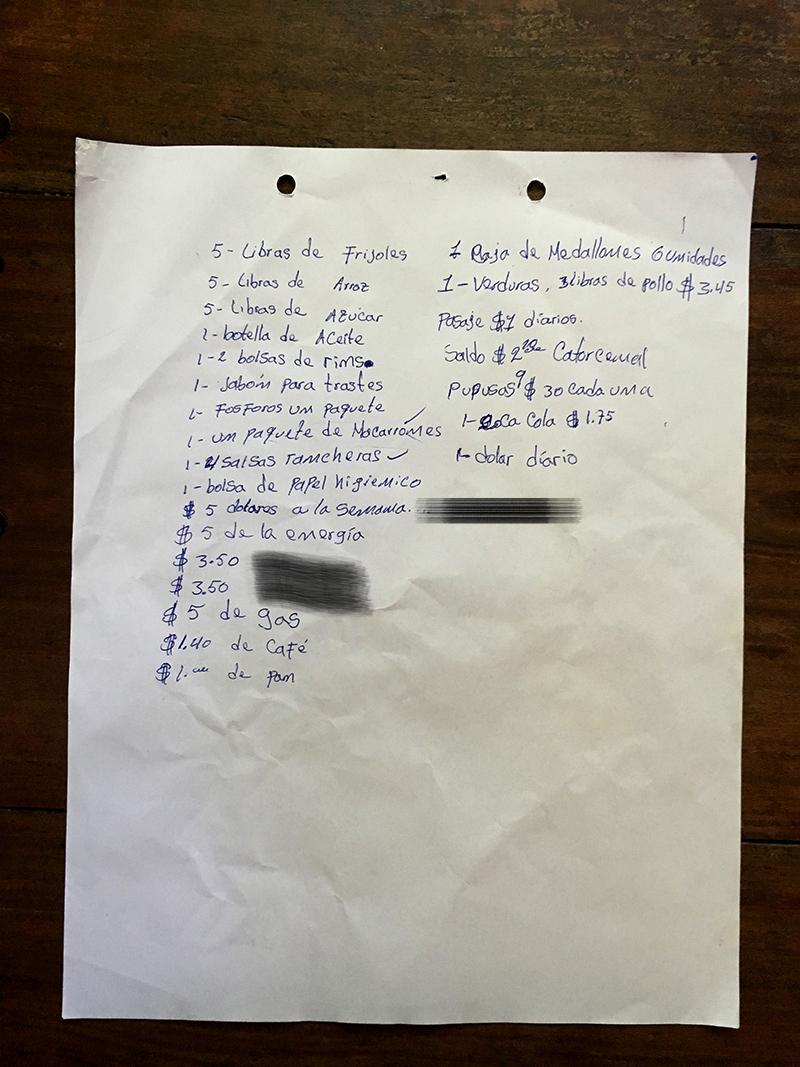 5- Libras de Frijoles
5- Libras de Arroz
5- Libras de Azúcar
1- botella de Aceite
1-2 bolsas de rinso
1- Jabón para trastes
1- Fosforos un paquete
1- un paquete de Macarrones
1-4 salsas rancheras ✓
1- bolsa de papel higienico
$ 5 dolares a la semana.
$ 5 de la energía
$ 3.50
$ 3.50
$ 5 de gas
$1.40 de Café
$1. de pan
1 Caja de Medallones 6 unidades
1- Verduras, 3 libras de pollo $ 3.45
Pasaje $1 diarios.
Saldo $ 2 Catorcenal
Pupusas 9 $ 30 cada una
1- Coca Cola $ 1.75
1- dolar diario